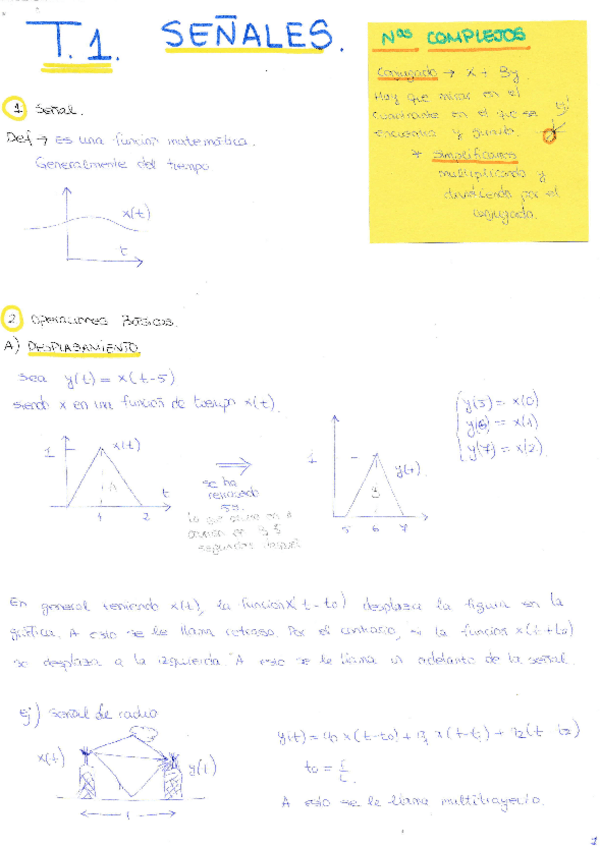 T.1. SEÑALES.
Nos COMPLEJOS
Conjugado → x + By.
Hay que mirar en el
cuadrante en el que se
encuentra y
* Simplificamos
multiplicando y
dividiendo por el
conjugado.
1 Señal.
Def → Es una función matemática.
Generalmente del tiempo
x(t)
t
2 Operaciones Básicas.
A) DESPLASAMIENTO
Sea y(t) = x(t-5)
siendo x en una función de tiempo x(t).
y(5) = x(0)
y(6) = x(1)
y(7) = x(2).
1
x(t)
t
1 2
se ha
retrasado
5s.
lo que
segundos
1
y(t).
3
5 6 7
En general teniendo x(t), la función x(t-to) desplaza la figura en la
gráfica. A esto se le llama retraso. Por el contrario, la función x(t+to)
se desplaza a la izquierda. A esto se le llama un adelanto de la señal.
ej) Señal de radio
x(t)
y(t)
y(t) = x(t-to) + x(t-t1) +
to =
A esto se le llama multitrayecto.
1